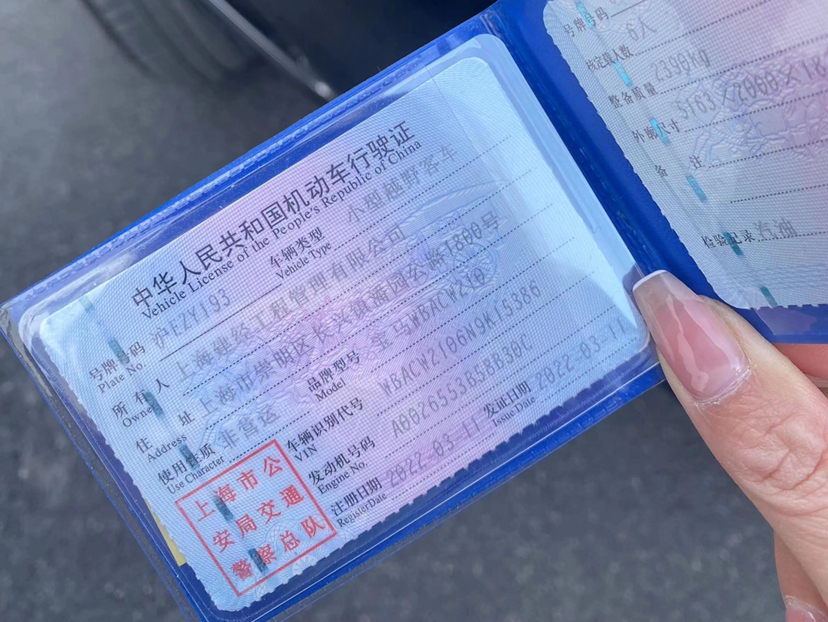 中华人民共和国机动车行驶证
Vehicle License of the People's Republic of China
号牌号码 沪FZY193 车辆类型 小型越野客车
Plate No. Vehicle Type
所有人 上海建经工程管理有限公司
Owner
住址 上海市崇明区长兴镇潘园公路1800号
Address
使用性质 非营运 品牌型号 宝马WBACW210
Use Character Model
车辆识别代号 WBACW2106N9K15386
VIN
发动机号码 A0026553B58B30C
Engine No.
注册日期 2022-03-11 发证日期 2022-03-11
Register Date Issue Date
上海市公
安局交通
警察总队
号牌号码
核定载人数 6人
整备质量 2390kg
外廓尺寸 5163×2000×18
备注
检验记录 汽油